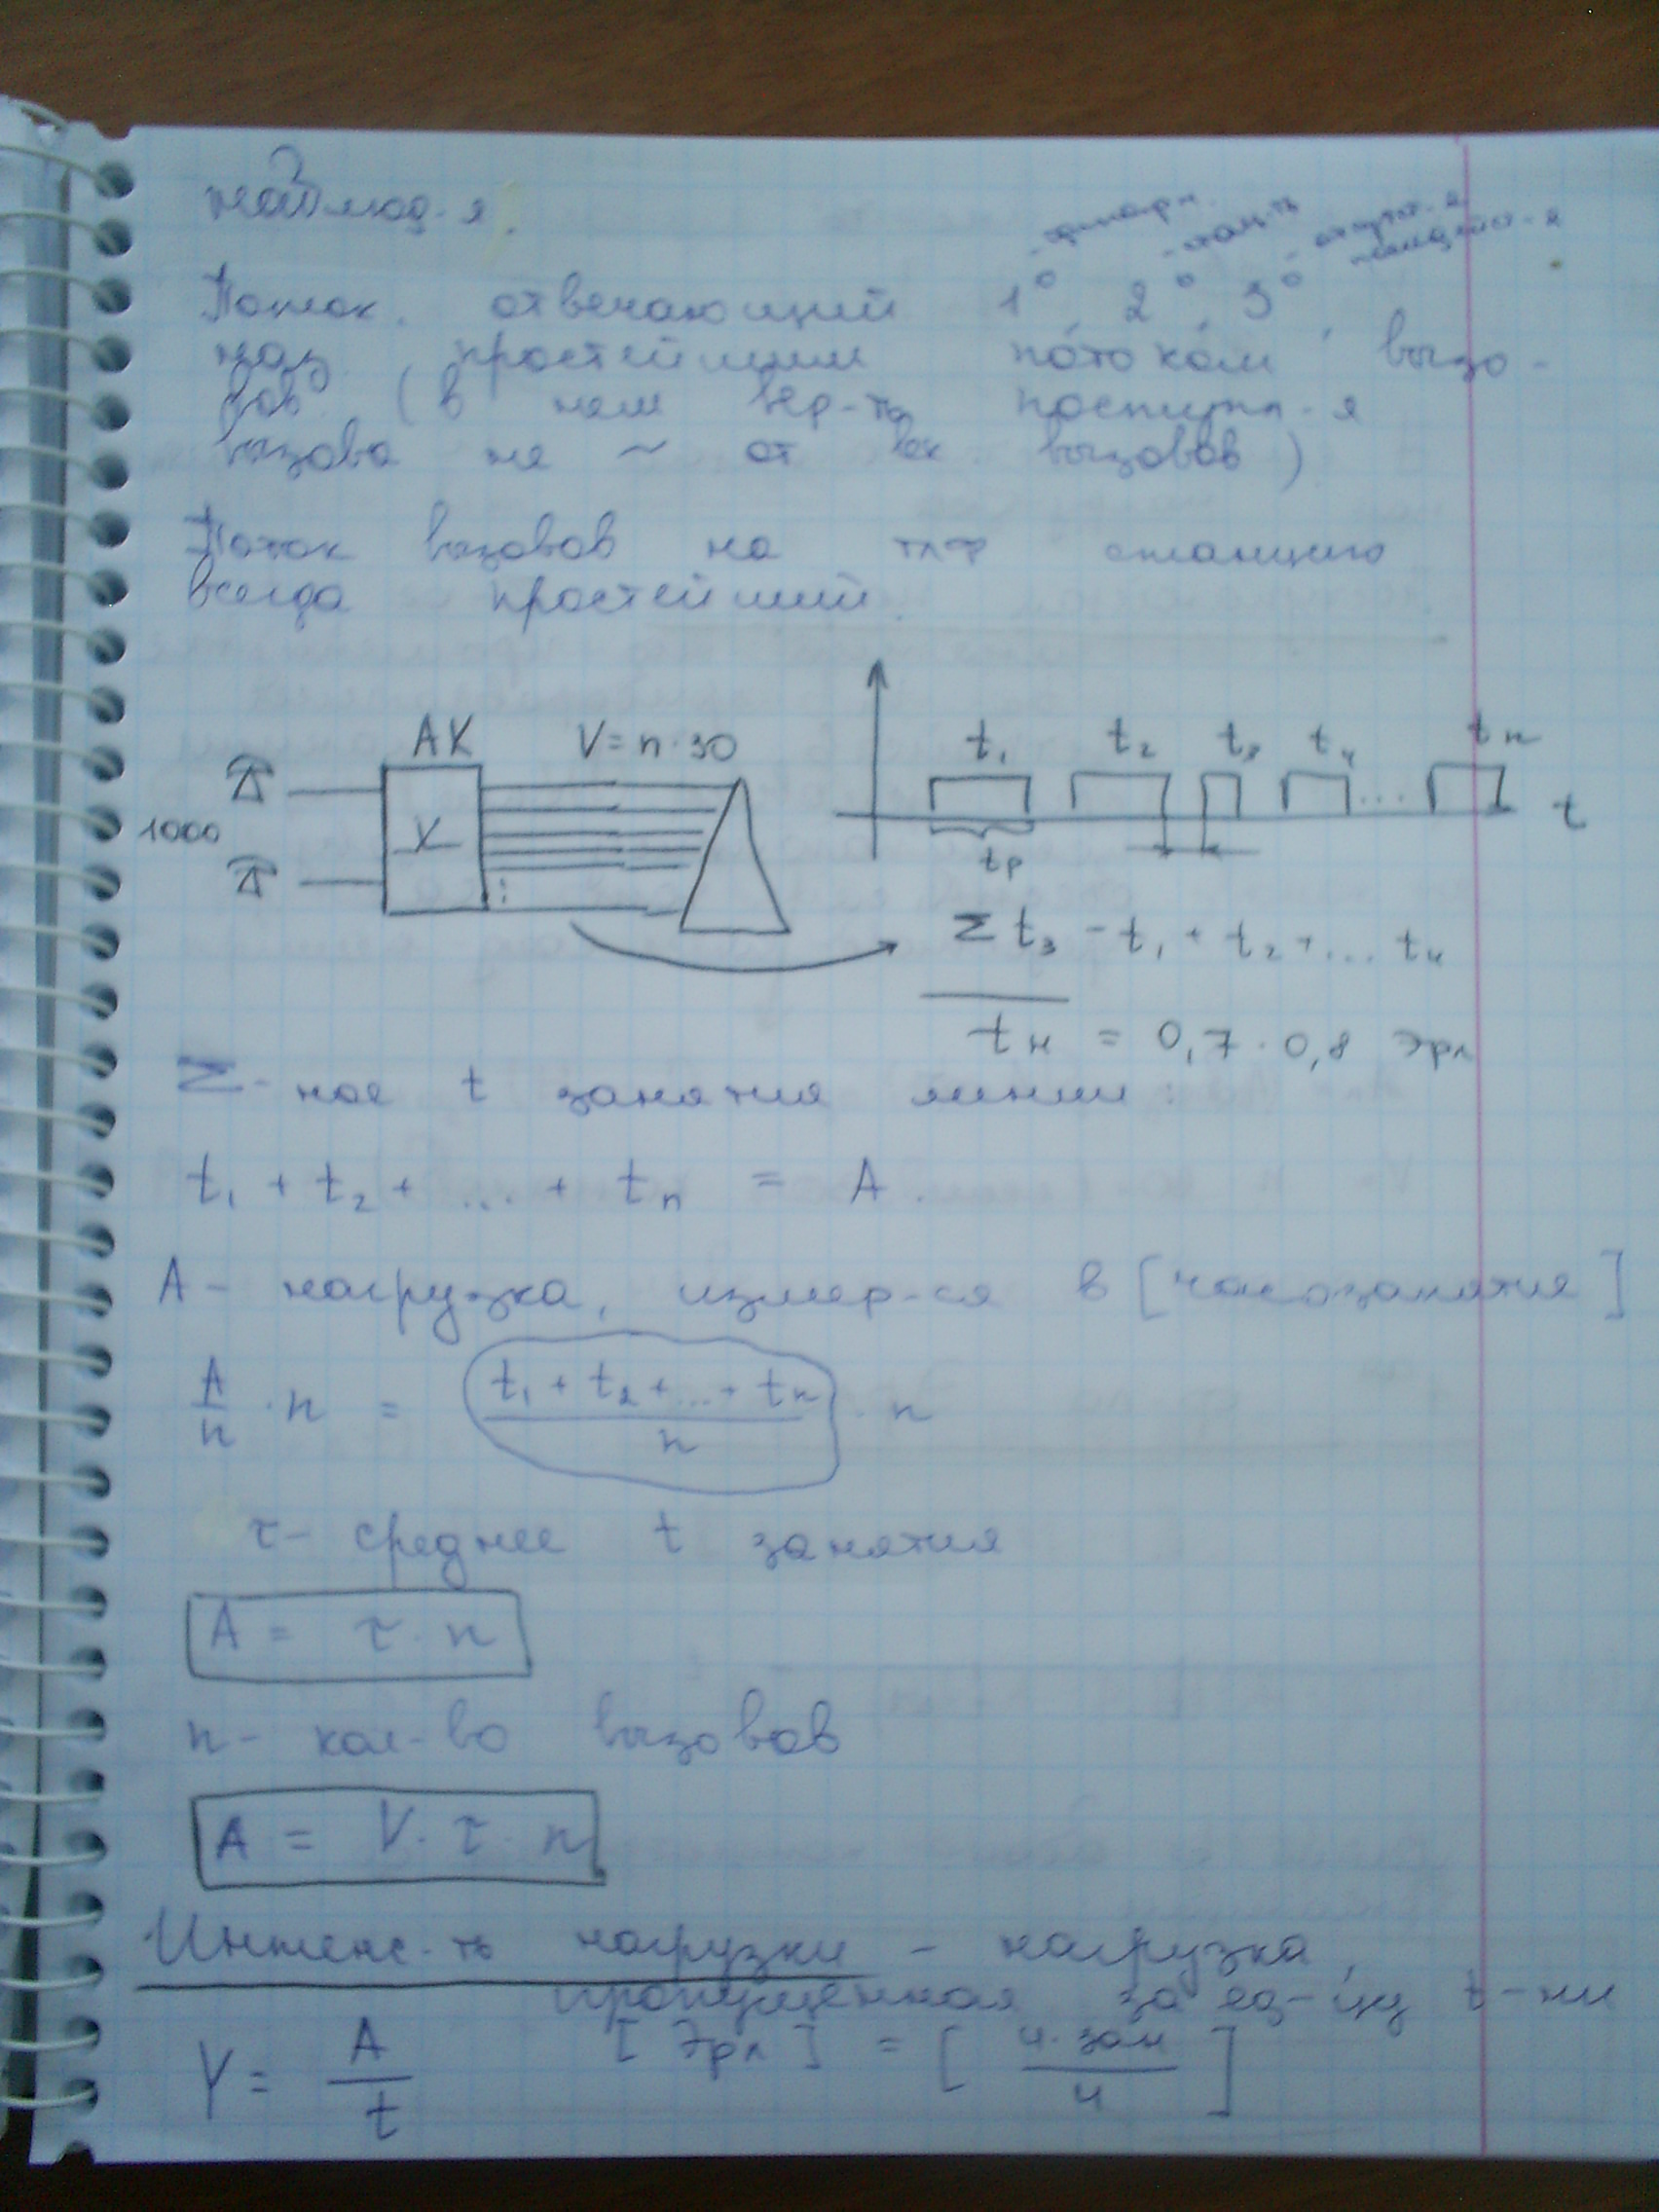 наблюд-я.
- ординарн. - стац-ть - отсутст-е
последейст-я
Поток, отвечающий 1°, 2°, 3°,
наз. простейшим потоком вызо-
вов (в нем вер-ть поступл-я
вызова не ~ от вызовов)
Поток вызовов на тлф станцию
всегда простейший.
АК V = n · 30 t₁ t₂ t₃ t₄ ... tн t
1000
tр
Σ t₃ - t₁ + t₂ + ... tн
tн = 0,7 · 0,8 Эрл
Σ-ное t занятия линии:
t₁ + t₂ + ... + tn = A.
A - нагрузка, измер-ся в [часозанятие]
A/n · n = (t₁ + t₂ + ... + tn)/n · n
τ - среднее t занятия
A = τ · n
n - кол-во вызовов
A = V · τ · n
Интенс-ть нагрузки - нагрузка,
пропущенная за ед-цу t-ни
Y = A/t [Эрл] = [ч·зан/ч]